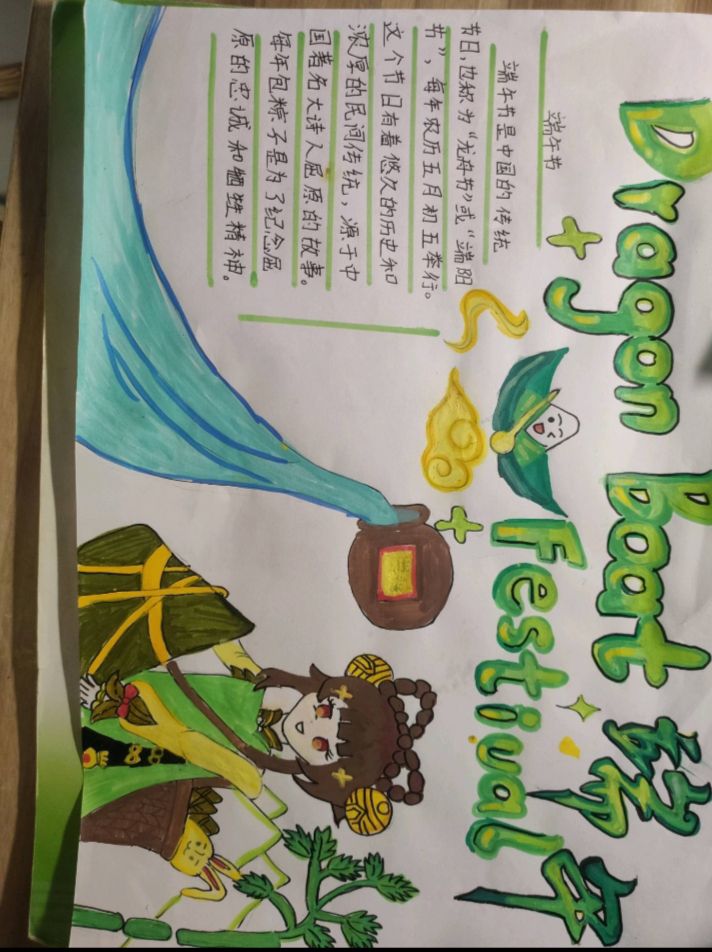 Dragon Boat 端午
Festival
端午节
端午节是中国的传统
节日,也称为“龙舟节”或“端阳
节”，每年农历五月初五举行。
这个节日有着悠久的历史和
浓厚的民间传统，源于中
国著名大诗人屈原的故事。
每年包粽不是为了纪念屈
原的忠诚和牺牲精神。